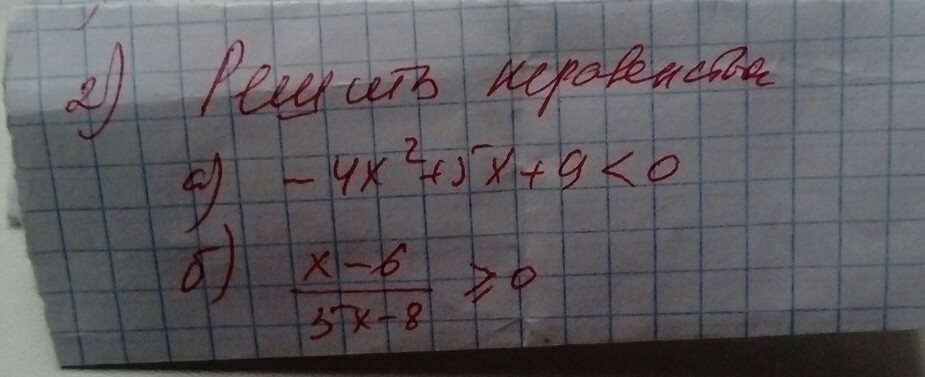 2) Решить неравенства
а) -4x²+5x+9<0
б) x-6
5x-8 ≥0